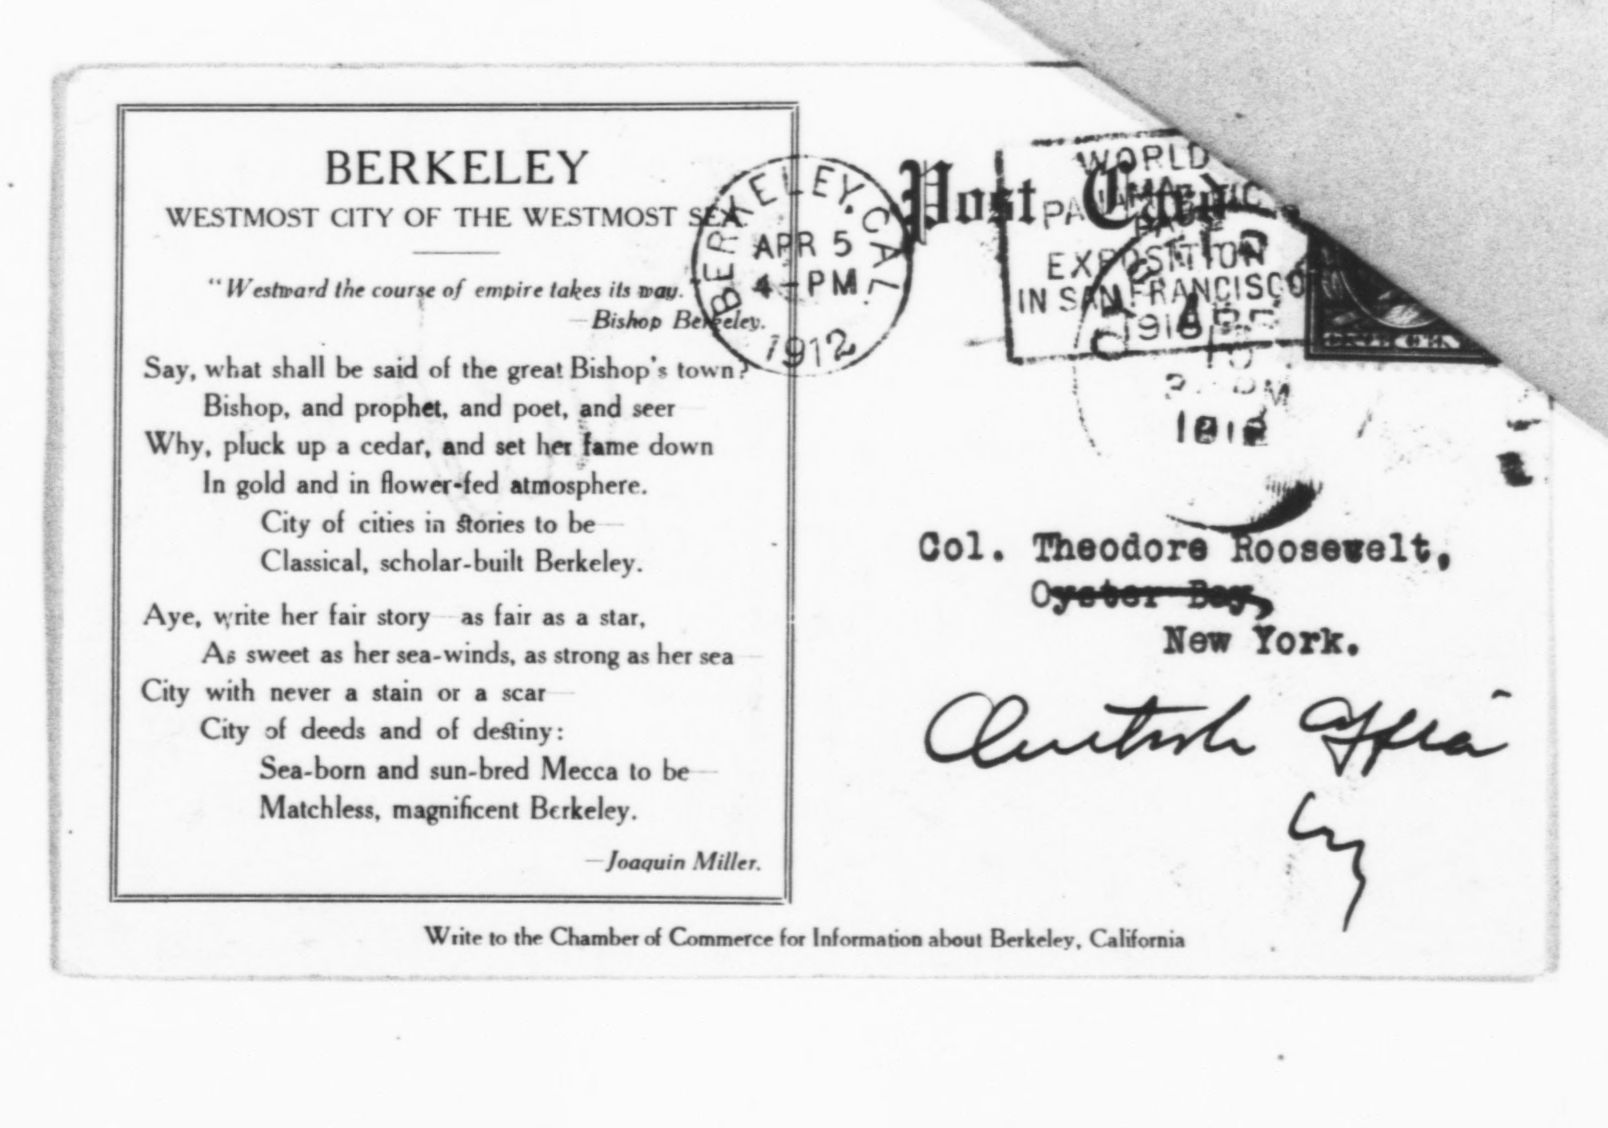 BERKELEY
WESTMOST CITY OF THE WESTMOST SEA
"Westward the course of empire takes its way."
—Bishop Berkeley.
Say, what shall be said of the great Bishop's town?
Bishop, and prophet, and poet, and seer—
Why, pluck up a cedar, and set her fame down
In gold and in flower-fed atmosphere.
City of cities in stories to be—
Classical, scholar-built Berkeley.
Aye, write her fair story—as fair as a star,
As sweet as her sea-winds, as strong as her sea—
City with never a stain or a scar—
City of deeds and of destiny:
Sea-born and sun-bred Mecca to be—
Matchless, magnificent Berkeley.
—Joaquin Miller.
BERKELEY, CAL.
APR 5
4—PM
1912
Post Card
WORLD
EXPOSITION
IN SAN FRANCISCO
Col. Theodore Roosevelt,
Oyster Bay,
New York.
Outlook Office
NY
Write to the Chamber of Commerce for Information about Berkeley, California